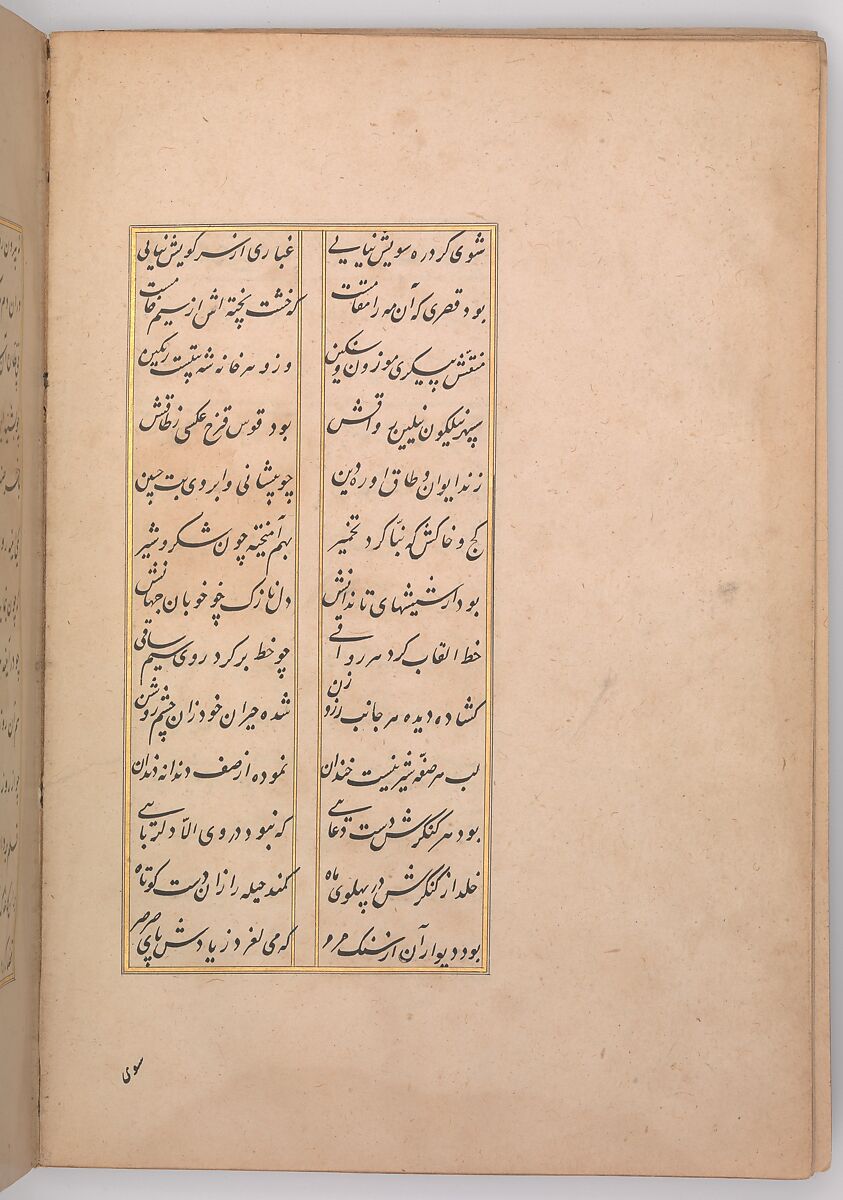 شوی گر دره سویش نیایی غباری از سر کویش نیایی
بود قصری که آن مه را مقامست که خشت پخته اش از سیم خامست
منقش پیکری موزون و سنگین و زو هر خانه شه بیتیست رنگین
سپهر نیلگون نیلین رواقش بود قوس قزح عکسی ز طاقش
زند ایوان و طاق او ره دین چو پیشانی و ابروی بت چین
گج و خاکش که بنا کرد تخمیر بهم آمیخته چون شکر و شیر
بود از شیشهای تابدانش دل نازک چو خوبان جهانش
خط القاب کرد هر رواقی چو خط بر کرد روی سیم ساقی
گشاده دیده هر جانب ز روزن شده حیران خود زان چشم روشن
لب هر صفه شیرینیست خندان نموده از صف دندانه دندان
بود هر کنگرش دست دعاهی که نبود در وی الا دلربایی
خلد از کنگرش در پهلوی ماه کمند حیله را زان دست کوتاه
بود دیوار آن از سنک مرمر که می لغزد ز یادش پای صرصر
سوی